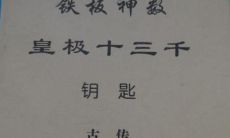 铁板神数
皇极十三千
钥匙
古传